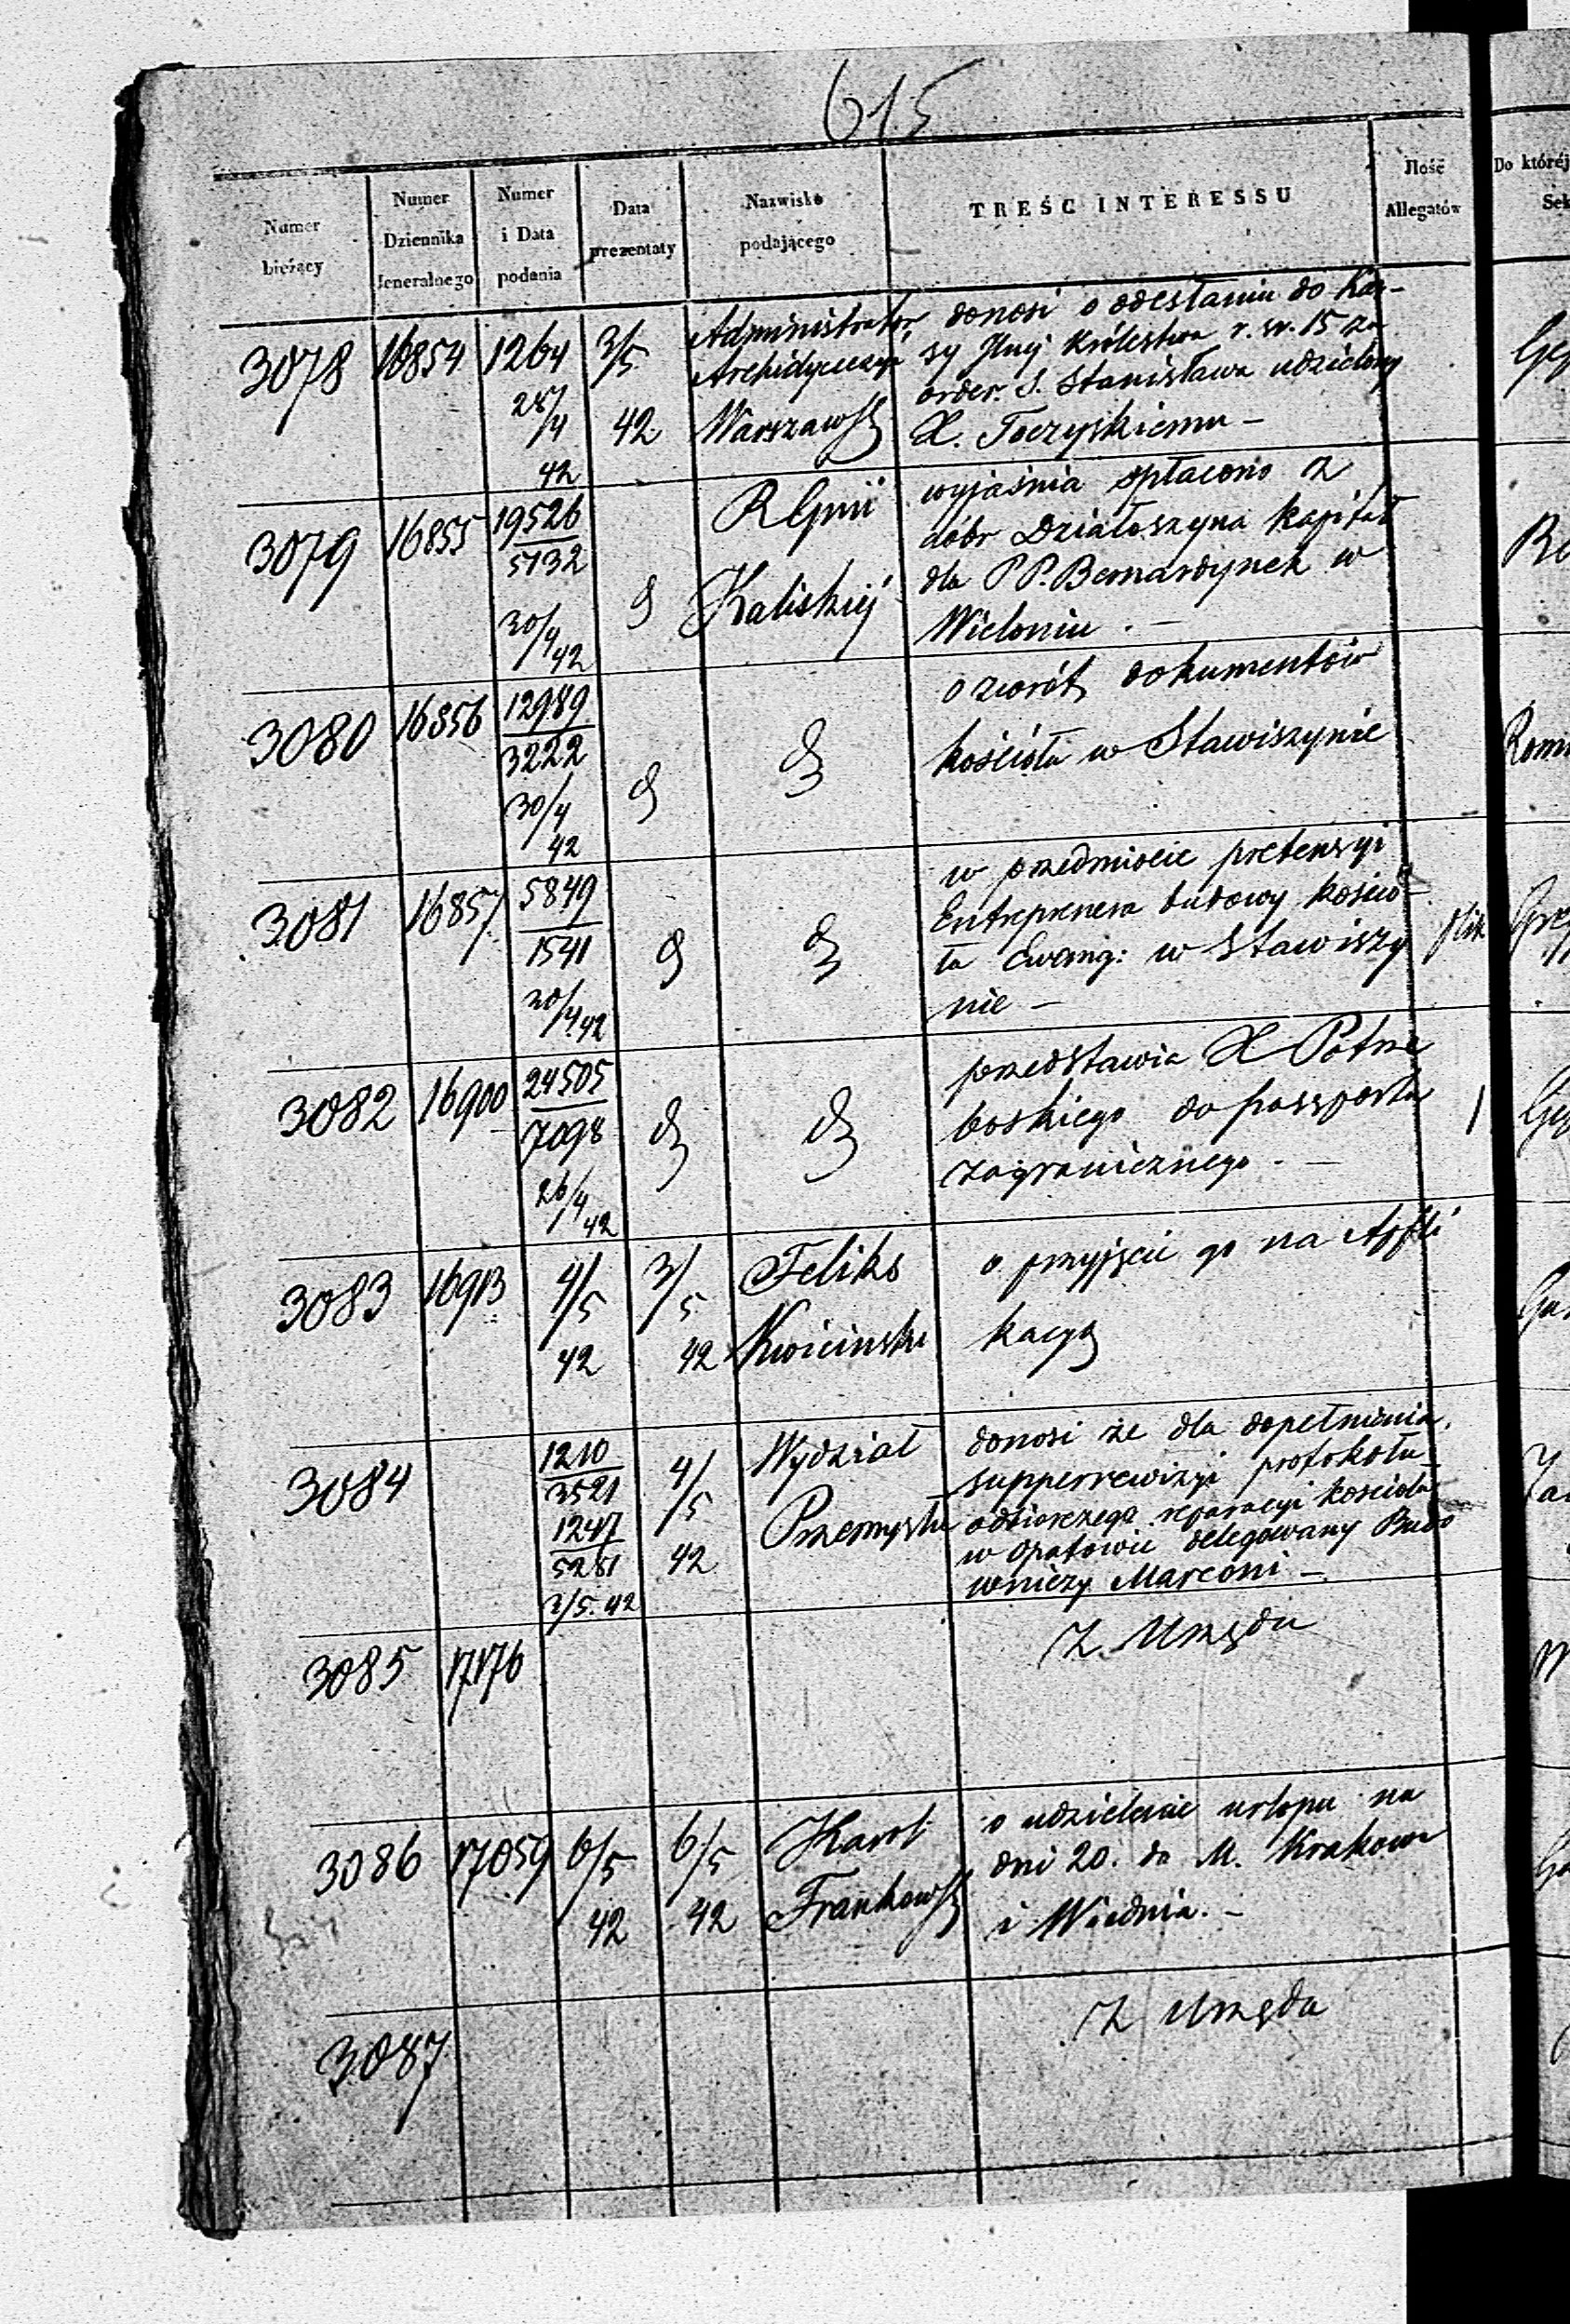 615
Numer bieżący
Numer Dziennika Jeneralnego
Numer i Data podania
Data prezentaty
Nazwisko podającego
TREŚĆ INTERESSU
Ilość Allegatów
Do któréj
3078
16854
1264
28/4
42
3/5
42
Administrator
Archidyecezyi
Warszaws
donosi o odesłaniu do Kas-
sy Jlnej Królestwa r. sr. 15 za
order. S. Stanisława udzielony
X. Toczyskiemu –
3079
16855
19526
5132
30/4 42
d
R Gmii
Kaliskiéj
wyjaśnia spłacono z
dóbr Działoszyna kapitał
dla PP. Bernardynek w
Wieloniu. –
3080
16856
12989
3222
30/4
42
d
d
o zwrót dokumentów
kościoła w Stawiszynie
3081
16857
5849
1541
30/4 42
d
d
w przedmiocie pretensyi
Entreprenera budowy kościo-
ła Ewang: w Stawiszy
nie –
plik
3082
16900
24505
7098
26/4 42
d
d
przedstawia X Potrze
boskiego do passportu
zagranicznego. –
1
3083
16913
4/5
42
3/5
42
Feliks
Kwicinski
o przyjęcie go na Appli
kacyą
3084
1210
3521
1247
5281
2/5. 42
4/5
42
Wydział
Przemysłu
donosi że dla dopełnienia
superrewizyi protokołu
odbiorczego reparacyi kościoła
w Opatowie delegowany Budo
wniczy Marconi –
3085
17176
Z Urzędu
3086
17059
6/5
42
6/5
42
Karol
Frankows
o udzielenie urlopu na
dni 20. do M. Krakowa
i Wiednia. –
3087
Z Urzędu